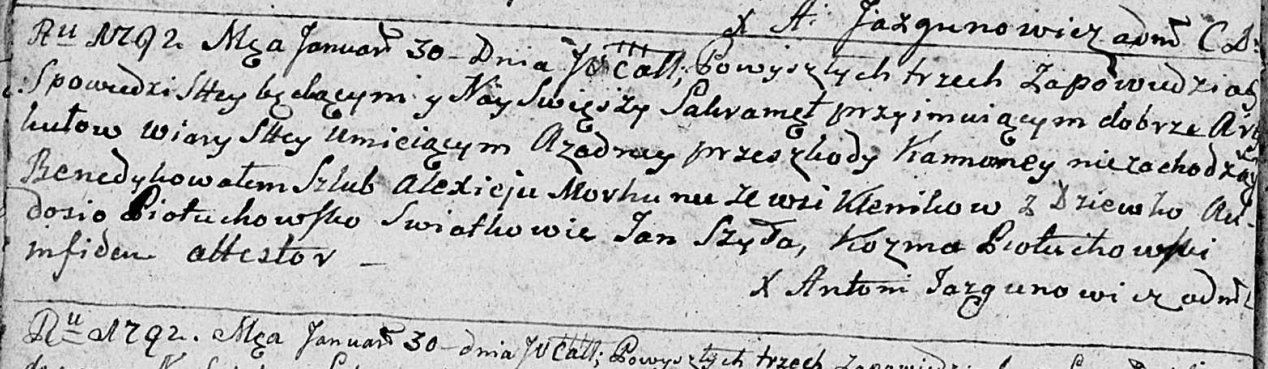 X A. Jazgunowicz adm CD.
Ru 1792. Mca Januar 30 – Dnia JV Call; Powyszłych trzech Zapowiedziach
Spowiedzi Stey będącymi y Nay Swięszy Sakramęt przyimuiącym dobrze Arty
kułow wiary Stey Umieiącym Azadney przeszkody Kannoney niezachodzący
Benedykowałem Szlub Alexieju Morhunu ze wsi Klenikow z Dziewko Au
dosio Piotuchowsko Swiatkowie Jan Szyła, Kozma Piotuchowski
infidem attestor –
X Antoni Jazgunowicz adm
Ru 1792. Mca Januar 30 – dnia JV Call; Powyszłych trzech Zapowiedzi